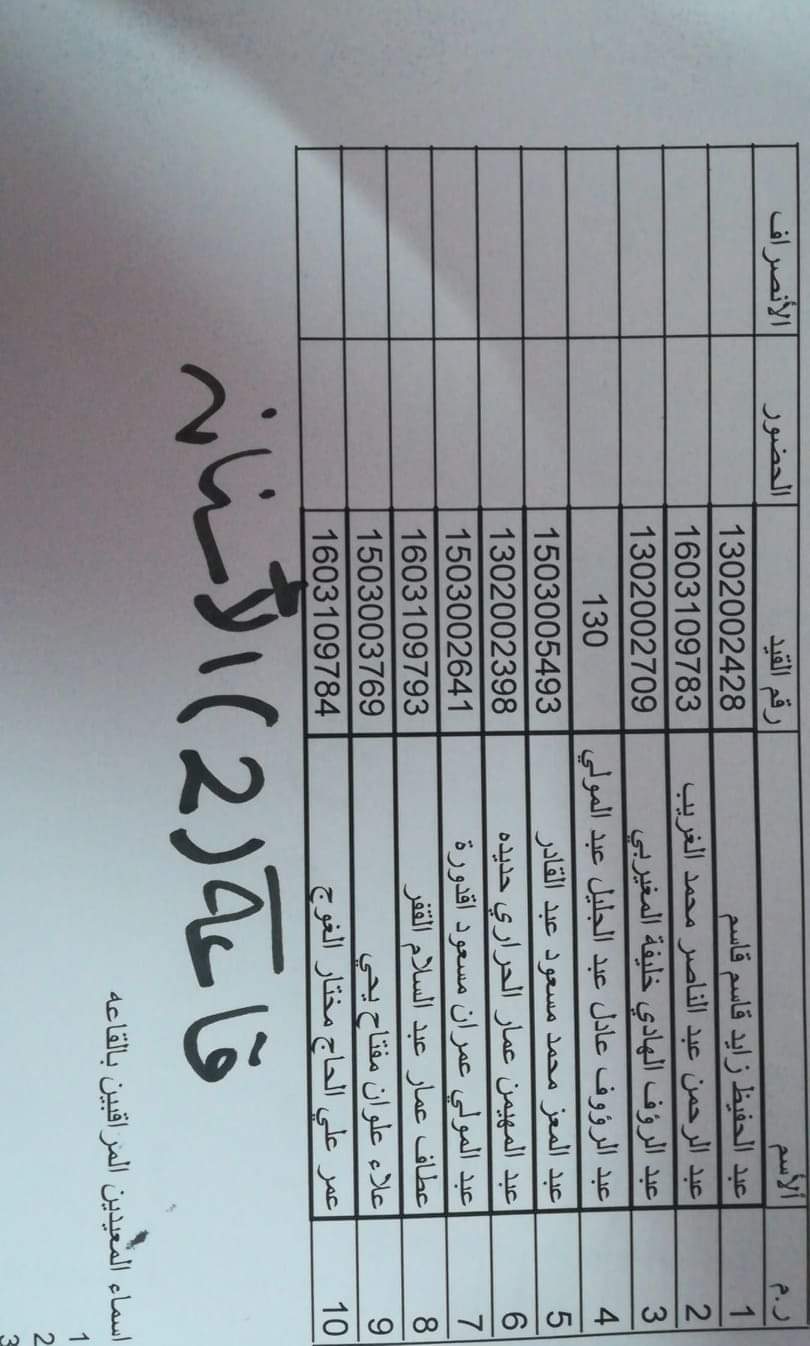 ر.م الأسم رقم القيد الحضور الأنصراف
1 عبد الحفيظ زايد قاسم قاسم 1302002428
2 عبد الرحمن عبد الناصر محمد الغريب 1603109783
3 عبد الرؤف الهادي خليفة المغيربي 1302002709
4 عبد الرؤوف عادل عبد الجليل عبد المولي 130
5 عبد المعز محمد مسعود عبد القادر 1503005493
6 عبد المهيمن عمار الحراري حديده 1302002398
7 عبد المولي عمران مسعود اقدورة 1503002641
8 عطاف عمار عبد السلام القفر 1603109793
9 علاء علوان مفتاح يحي 1503003769
10 عمر علي الحاج مختار الغوج 1603109784
قاعة (2)
اسماء المعيدين المراقبين بالقاعه
1
2
3